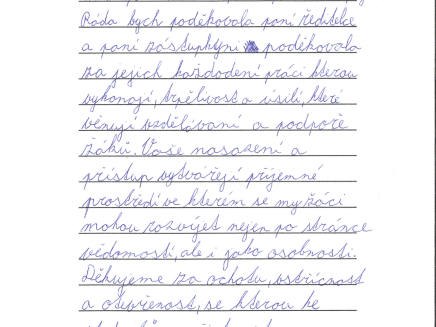 Ráda bych poděkovala paní ředitelce
a paní zástupkyni poděkovala
za jejich každodení práci kterou
vykonají, trpělivost a úsilí, které
věnují vzdělávaní a podpoře
žáků. Vaše nasazení a
přístup vytvářejí příjemné
prostředí ve kterém se my žáci
mohou rozvíjet nejen po stránce
vědomostí, ale i jako osobnosti.
Děkujeme za ochotu, vstřícnost
a otevřenost, se kterou ke